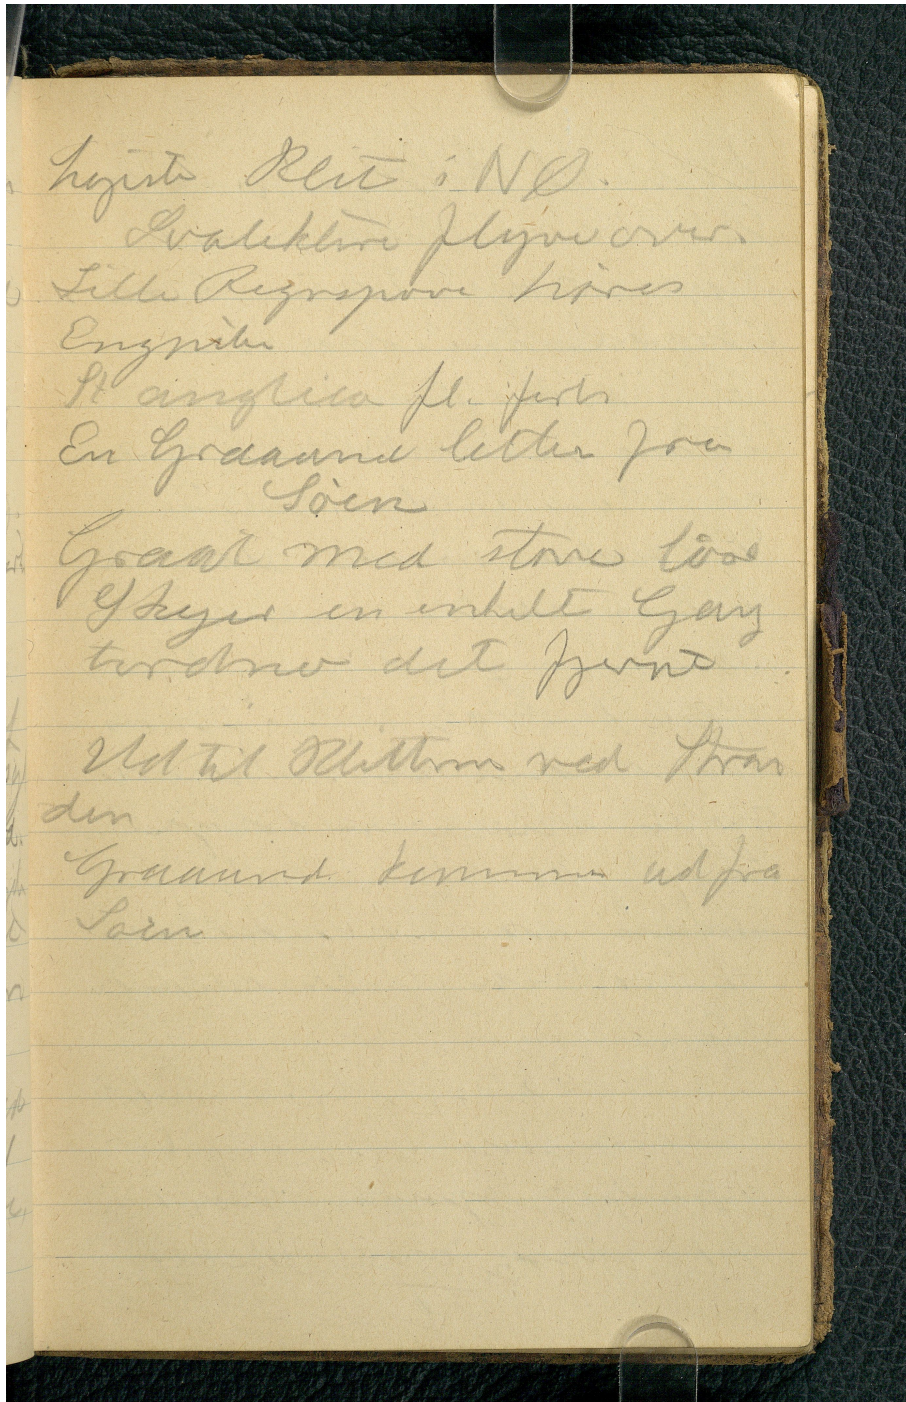 højeste Klit i NØ.
Svaleklire flyve over.
Lille Regnspove høres
Engpiber
St anglica fl.
En Graaand letter fra
Søen
Graat med store løse
Skyer en enkelt Gang
tordner det fjernt
Ud til Klitterne ved Stran
den
Graaand kommer ud fra
Søen